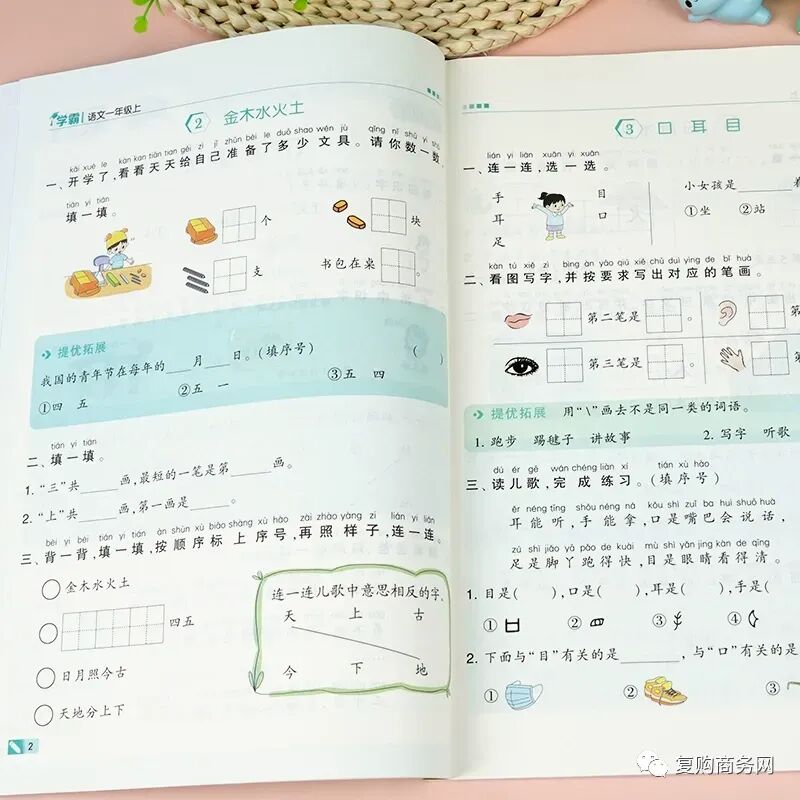 学霸 语文一年级上
2 金木水火土
kāi xué le kàn kan tiān tian gěi zì jǐ zhǔn bèi le duō shao wén jù qǐng nǐ shǔ yi shǔ
一、开学了,看看天天给自己准备了多少文具。请你数一数,
tián yi tián
填一填。
个
块
支
书包在桌
提优拓展
我国的青年节在每年的____月____日。(填序号) ( )
①四 五 ②五 一 ③五 四
tián yi tián
二、填一填。
1. “三”共____画,最短的一笔是第____画。
2. “上”共____画,第一画是____。
bèi yi bèi tián yi tián àn shùn xù biāo shàng xù hào zài zhào yàng zi lián yi lián
三、背一背,填一填,按顺序标上序号,再照样子,连一连。
金木水火土
四五
日月照今古
天地分上下
连一连儿歌中意思相反的字。
天 上 古
今 下 地
2
3 口耳目
lián yi lián xuǎn yi xuǎn
一、连一连,选一选。
手 目
耳 口
足
小女孩是____
①坐 ②站
kàn tú xiě zì bìng àn yāo qiú xiě chū duì yìng de bǐ huà
二、看图写字,并按要求写出对应的笔画。
第二笔是
第三笔是
提优拓展 用“\”画去不是同一类的词语。
1. 跑步 踢毽子 讲故事 2. 写字 听歌
dú ér gē wán chéng liàn xí tián xù hào
三、读儿歌,完成练习。(填序号)
ěr néng tīng shǒu néng ná kǒu shì zuǐ ba huì shuō huà
耳能听,手能拿,口是嘴巴会说话,
zú shì jiǎo yā pǎo de kuài mù shì yǎn jing kàn de qīng
足是脚丫跑得快,目是眼睛看得清。
1. 目是( ),口是( ),耳是( ),手是(
① ② ③ ④
2. 下面与“目”有关的是____,与“口”有关的是
① ② ③
复购商务网